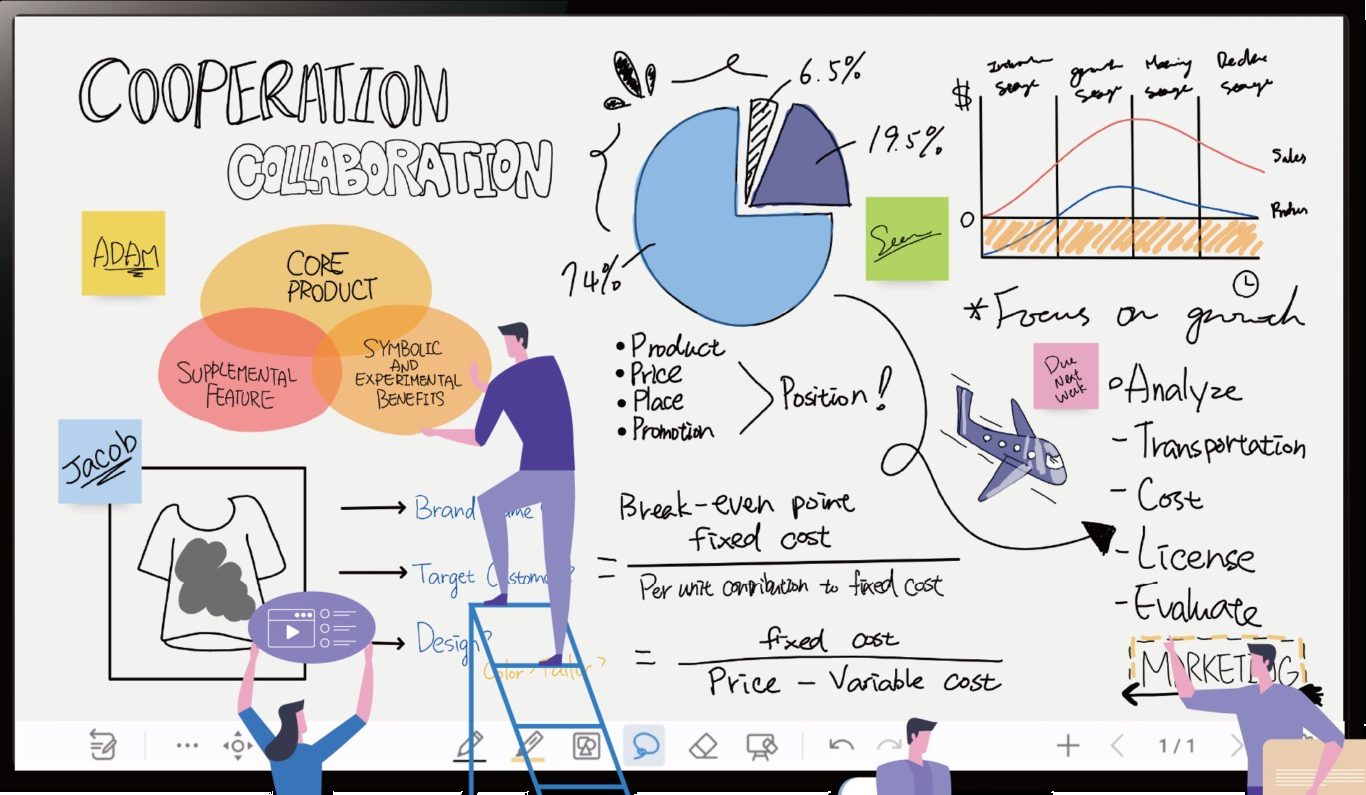 COOPERATION
COLLABORATION
ADAM
CORE
PRODUCT
SUPPLEMENTAL
FEATURE
SYMBOLIC
AND
EXPERIMENTAL
BENEFITS
Jacob
Brand
Target
Design?
6.5%
19.5%
74%
• Product
• Price
• Place
• Promotion
Position!
Break-even point
= fixed cost
Per unit contribution to fixed cost
= fixed cost
Price - Variable cost
$
stage
growth
stage
stage
stage
Sales
0
*Focus on growth
Due
Next
Week
Analyze
- Transportation
- Cost
- License
- Evaluate
1/1